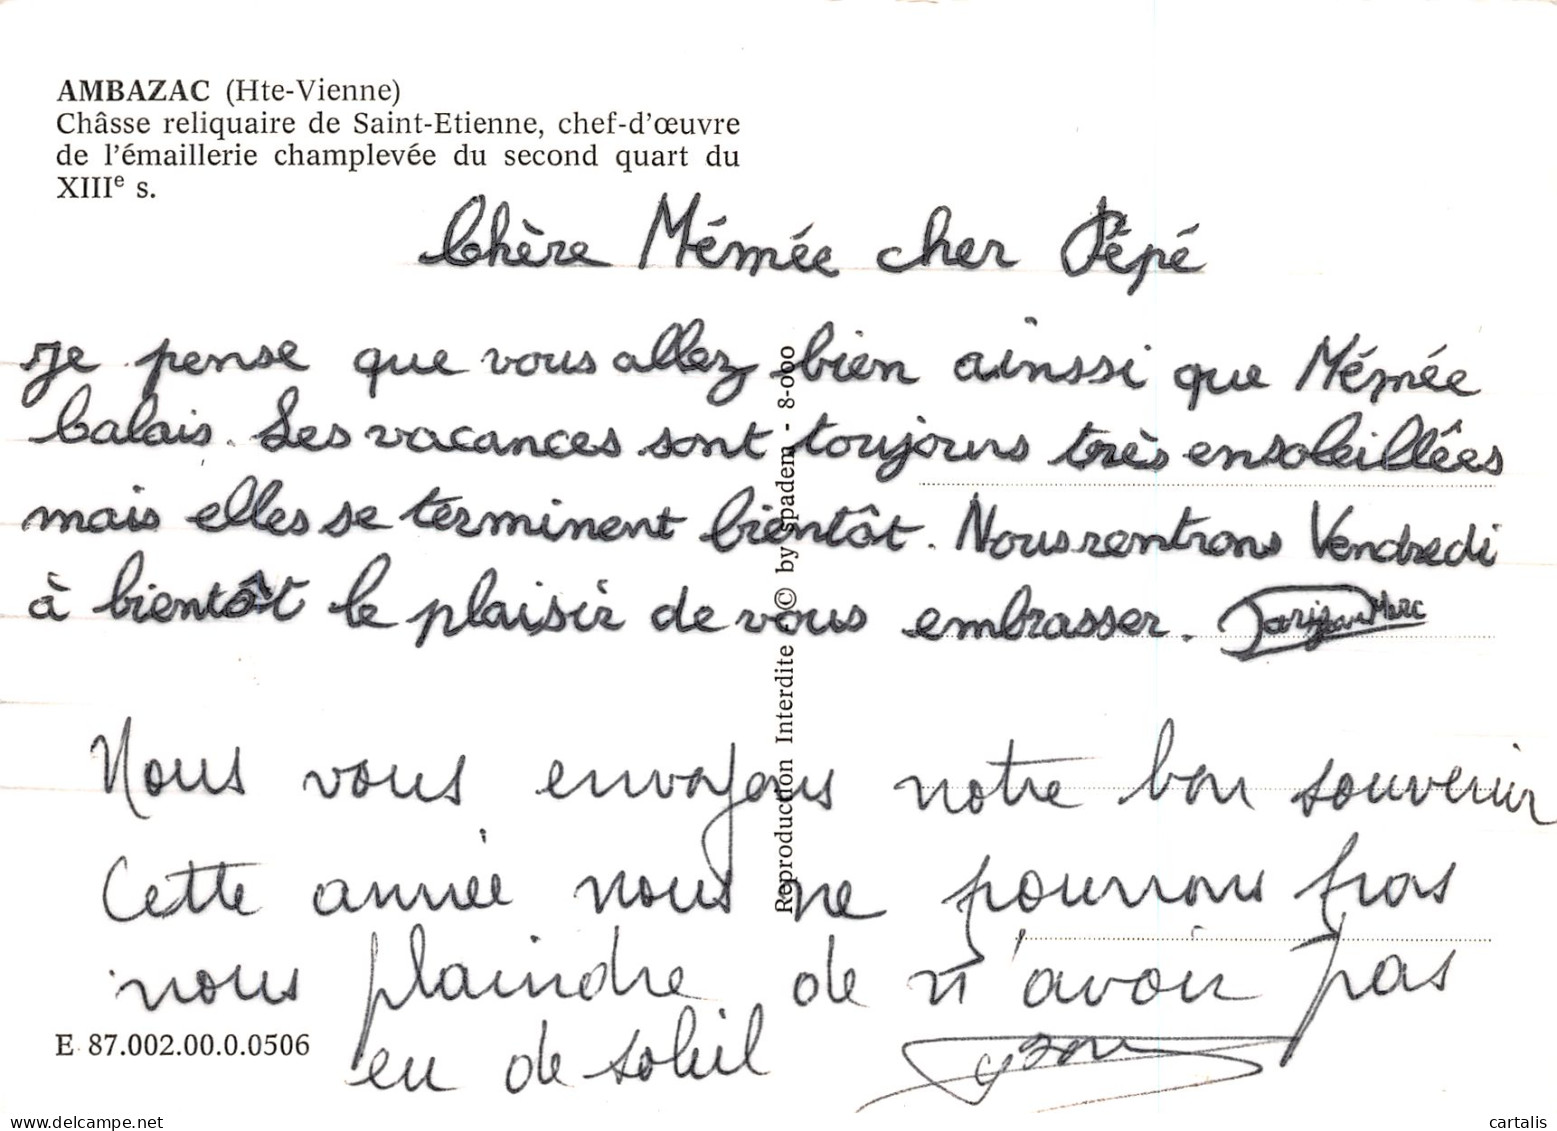 AMBAZAC (Hte-Vienne)
Châsse reliquaire de Saint-Etienne, chef-d'œuvre
de l'émaillerie champlevée du second quart du
XIIIe s.
Chère Mémée cher Pépé
Je pense que vous allez bien ainssi que Mémée
Calais. Les vacances sont toujours très ensoleillées
mais elles se terminent bientôt. Nous rentrons Vendredi
à bientôt le plaisir de vous embrasser. Marc
Nous vous envoyons notre bon souvenir
Cette année nous ne pourrons pas
nous plaindre de n'avoir pas
eu de soleil
E 87.002.00.0.0506
Reproduction Interdite - © by spadem - 8-000
www.delcampe.net
cartalis